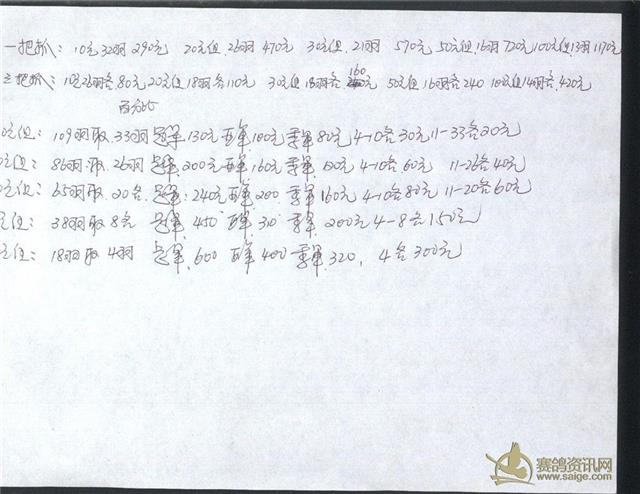 一把抓: 10元32羽290元 20元组.26羽470元 30元组.21羽 570元 50元组.16羽720元100元组.13羽1170元
三把抓: 10元26羽各80元20元组18羽各110元 30元组18羽各160元 50元组16羽各240 100元组14羽各420元
百分比
0元组: 109羽取.33羽冠军130元亚军100元季军80元4-10各30元11-33各20元
0元组: 86羽取.26羽冠军200元亚军160元季军.120元4-10名60元 11-26名40元
0元组: 65羽取.20名.冠军.240元亚军200季军160元4-10名80元11-20名60元
元组: 38羽取8名 冠军.450 亚军310 季军.200元4-8名150元
元组: 18羽取4羽 冠军.600 亚军400 季军.320, 4名300元
赛鸽资讯网
www.saige.com